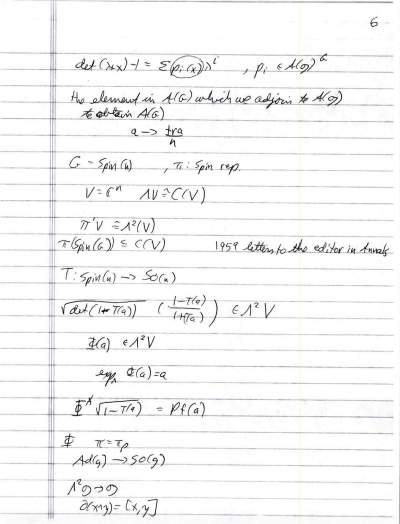 6
det(λ+x)-1 = Σ p_i(x) λ^i , p_i ∈ A(g)^G
the element in A(G) which we adjoin to A(g)
to obtain A(G)
a → tra/n
G = Spin(n) , π: Spin rep.
V = C^n ΛV ≅ C(V)
π'V ≅ Λ²(V)
π(Spin(G)) ⊆ C(V) 1959 letters to the editor in Annals
T: Spin(n) → SO(n)
√det(1+T(a)) ((1-T(a))/(1+T(a))) ∈ Λ²V
Φ(a) ∈ Λ²V
exp Φ(a) = a
√1-T(a) = Pf(a)
Φ π = τρ
Ad(g) → SO(g)
Λ²g → g
∂(x∧y) = [x,y]